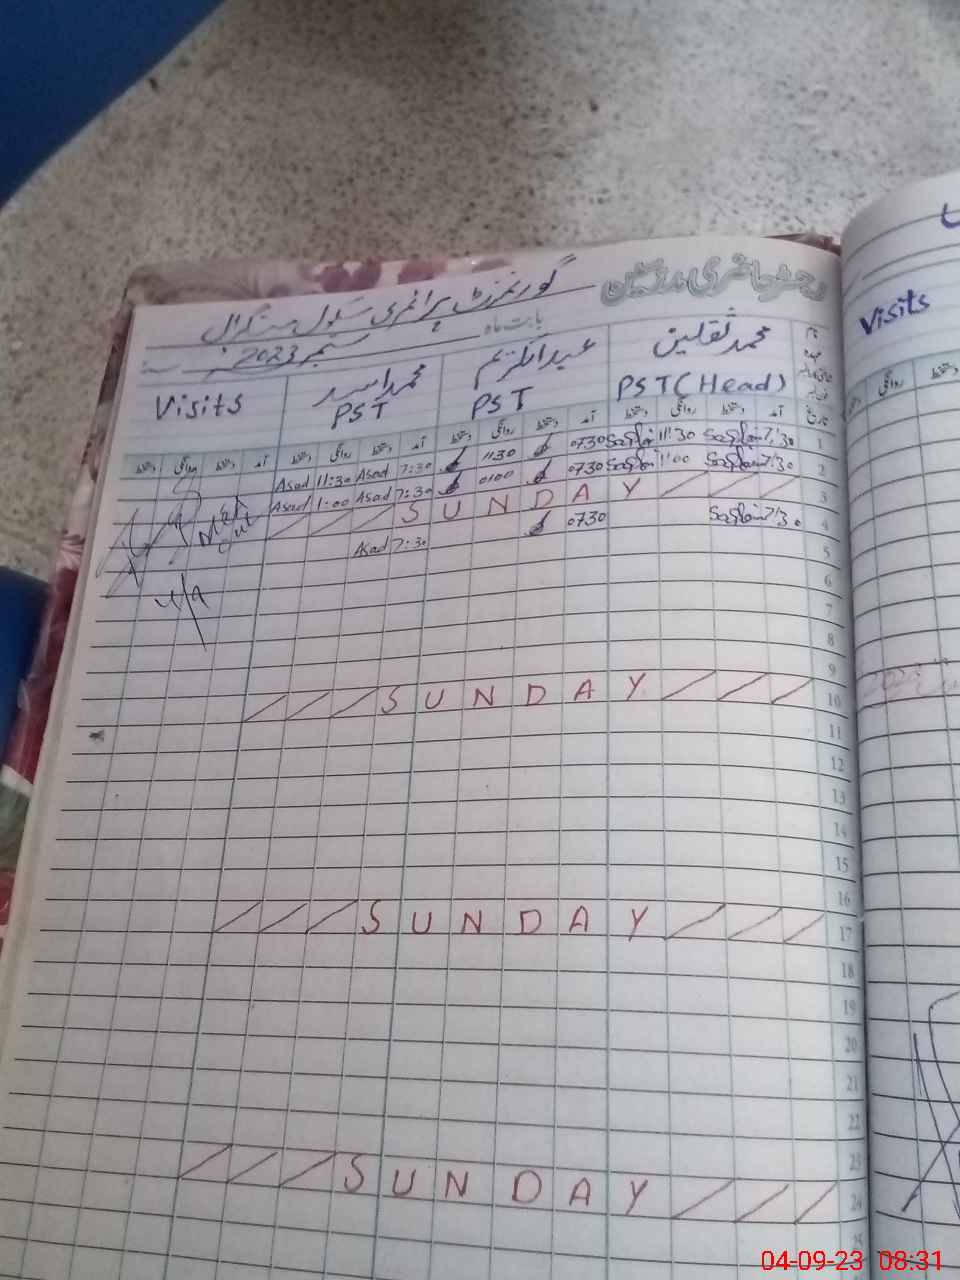 رجسٹر حاضری مدرسین
گورنمنٹ پرائمری سکول
بابت ماہ ستمبر 2023
محمد ثقلین
عبدالکریم
محمد اسد
Visits
PST (Head)
PST
PST
Visits
آمد دستخط روانگی دستخط آمد دستخط روانگی دستخط آمد دستخط روانگی دستخط آمد دستخط روانگی دستخط
1 7:30 Saqlain 11:30 Saqlain 0730 1130 7:30 Asad 11:30 Asad
2 7:30 Saqlain 1:00 Saqlain 0730 0100 7:30 Asad 1:00 Asad
3 SUNDAY
4 7:30 Saqlain 0730 7:30 Asad
5
6
7
8
9
10 SUNDAY
11
12
13
14
15
16
17 SUNDAY
18
19
20
21
22
23
24 SUNDAY
25
04-09-23 08:31